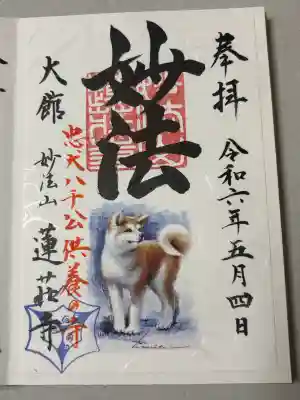 奉拝
令和六年五月四日
妙法
忠犬ハチ公供養の寺
大館
妙法山
蓮荘寺